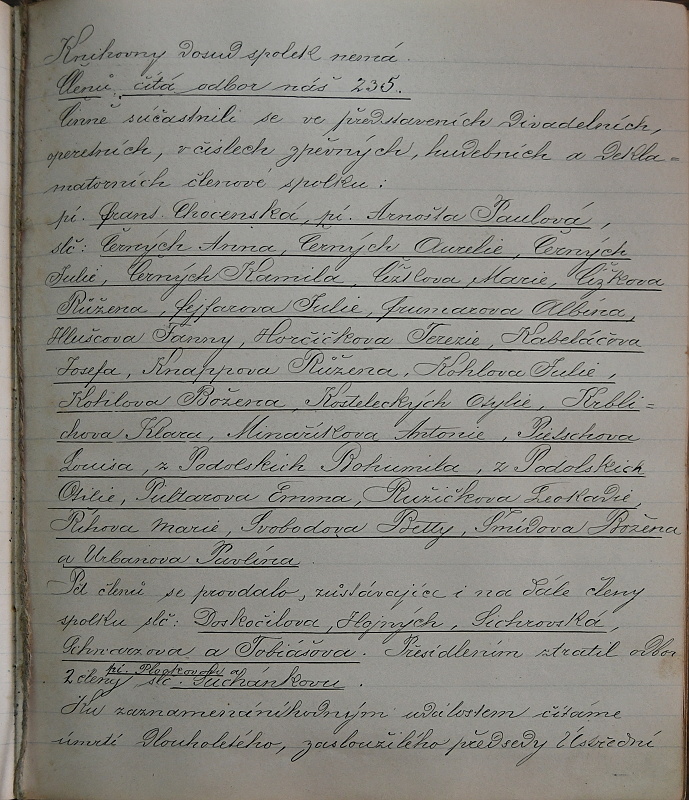 Knihovny dosud spolek nemá.
Členů čítá odbor náš 235.
Činně súčastnili se ve představeních divadelních,
operetních, v číslech zpěvných, hudebních a dekla=
matorních členové spolku:
pí. Frant. Chocenská, pí. Arnošta Paulová,
slč: Černých Anna, Černých Aurelie, Černých
Julie, Černých Kamila, Čížkova Marie, Čížkova
Růžena, Fejfarova Julie, Frumarova Albína,
Hlušcova Fanny, Horčičkova Terezie, Kabeláčova
Josefa, Knappova Růžena, Kohlova Julie,
Kotilova Božena, Kosteleckých Otylie, Krbli=
chova Klara, Minaříkova Antonie, Pietschova
Louisa, z Podolských Bohumila, z Podolských
Otilie, Pultarova Emma, Ružičkova Leokadie,
Říhova Marie, Svobodova Betty, Šmídova Božena
a Urbanova Pavlína.
Pět členů se provdalo, zůstávajíce i na dále členy
spolku slč: Doskočilova, Hojných, Sichrovská,
Schwarzova a Tobiášova. Přesídlením ztratil odbor
2 členy pí. Plockovou a slč. Suchánkovu.
Ku zaznamenáníhodným událostem čítáme
úmrtí dlouholetého, zasloužilého předsedy Ústřední